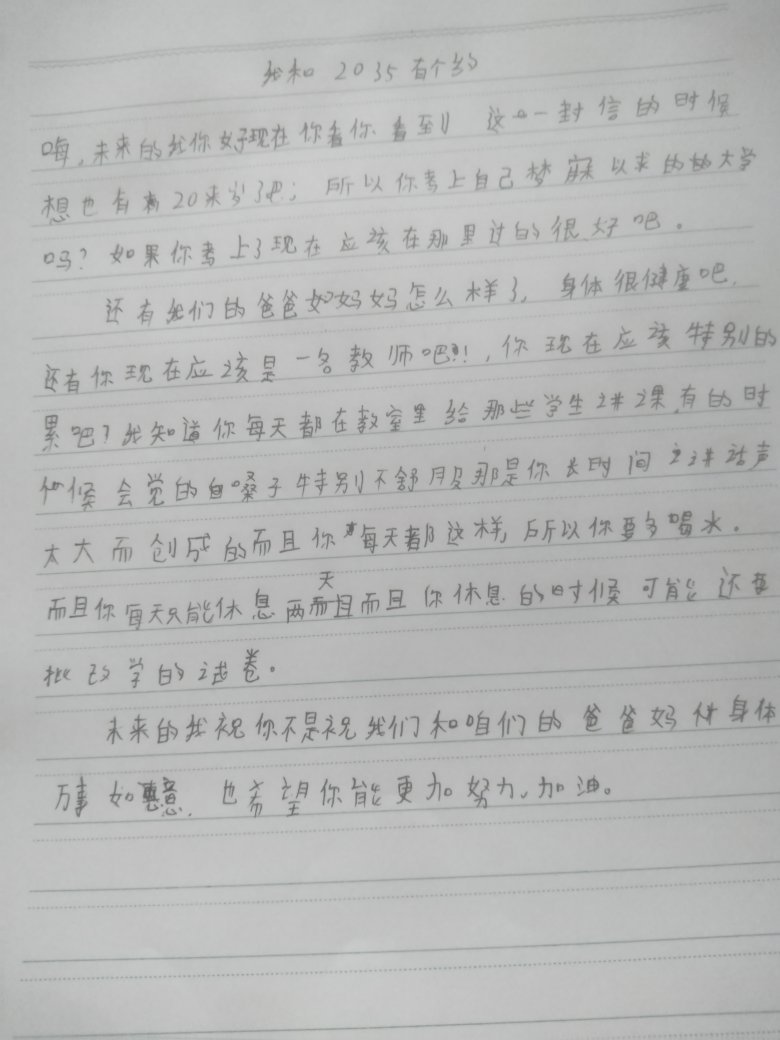 我和 2035 有个约
嗨,未来的我你好现在你看你看到 这一封信的时候
想也有 20来岁了吧; 所以你考上自己梦寐以求的的大学
吗? 如果你考上了现在应该在那里过的很好吧。
还有我们的爸爸妈妈怎么样了, 身体很健康吧,
还有你现在应该是一名教师吧!!, 你现在应该特别的
累吧? 我知道你每天都在教室里给那些学生讲课,有的时
候会觉的嗓子特别不舒服那是你长时间讲话声
太大而创成的而且你每天都这样, 所以你要多喝水。
而且你每天只能休息两天而且你休息的时候可能还要
批改学的试卷。
未来的我祝你不是祝我们和咱们的爸爸妈身体
万事如意, 也希望你能更加努力,加油。